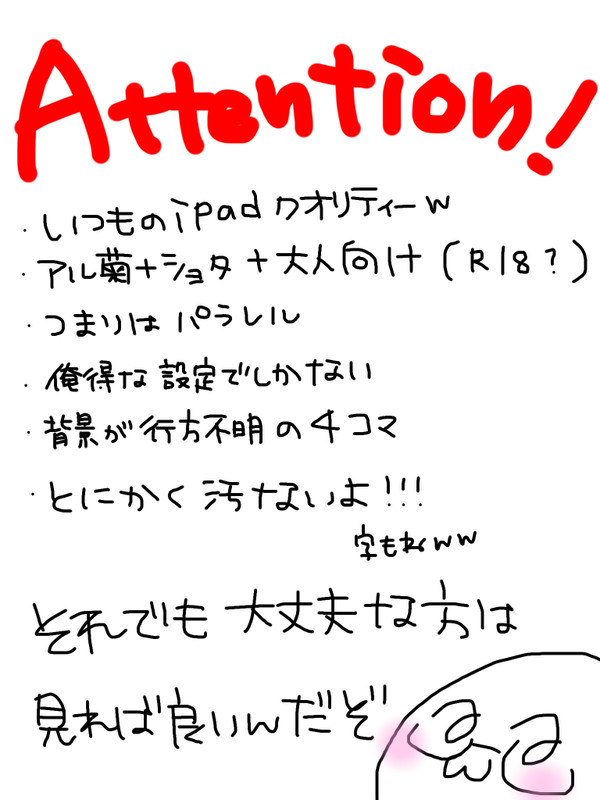 Attention!
・いつものiPadクオリティーw
・アル菊+ショタ+大人向け(R18?)
・つまりはパラレル
・俺得な設定でしかない
・背景が行方不明の4コマ
・とにかく汚ないよ!!!
字もねww
それでも大丈夫な方は
見れば良いんだぞ